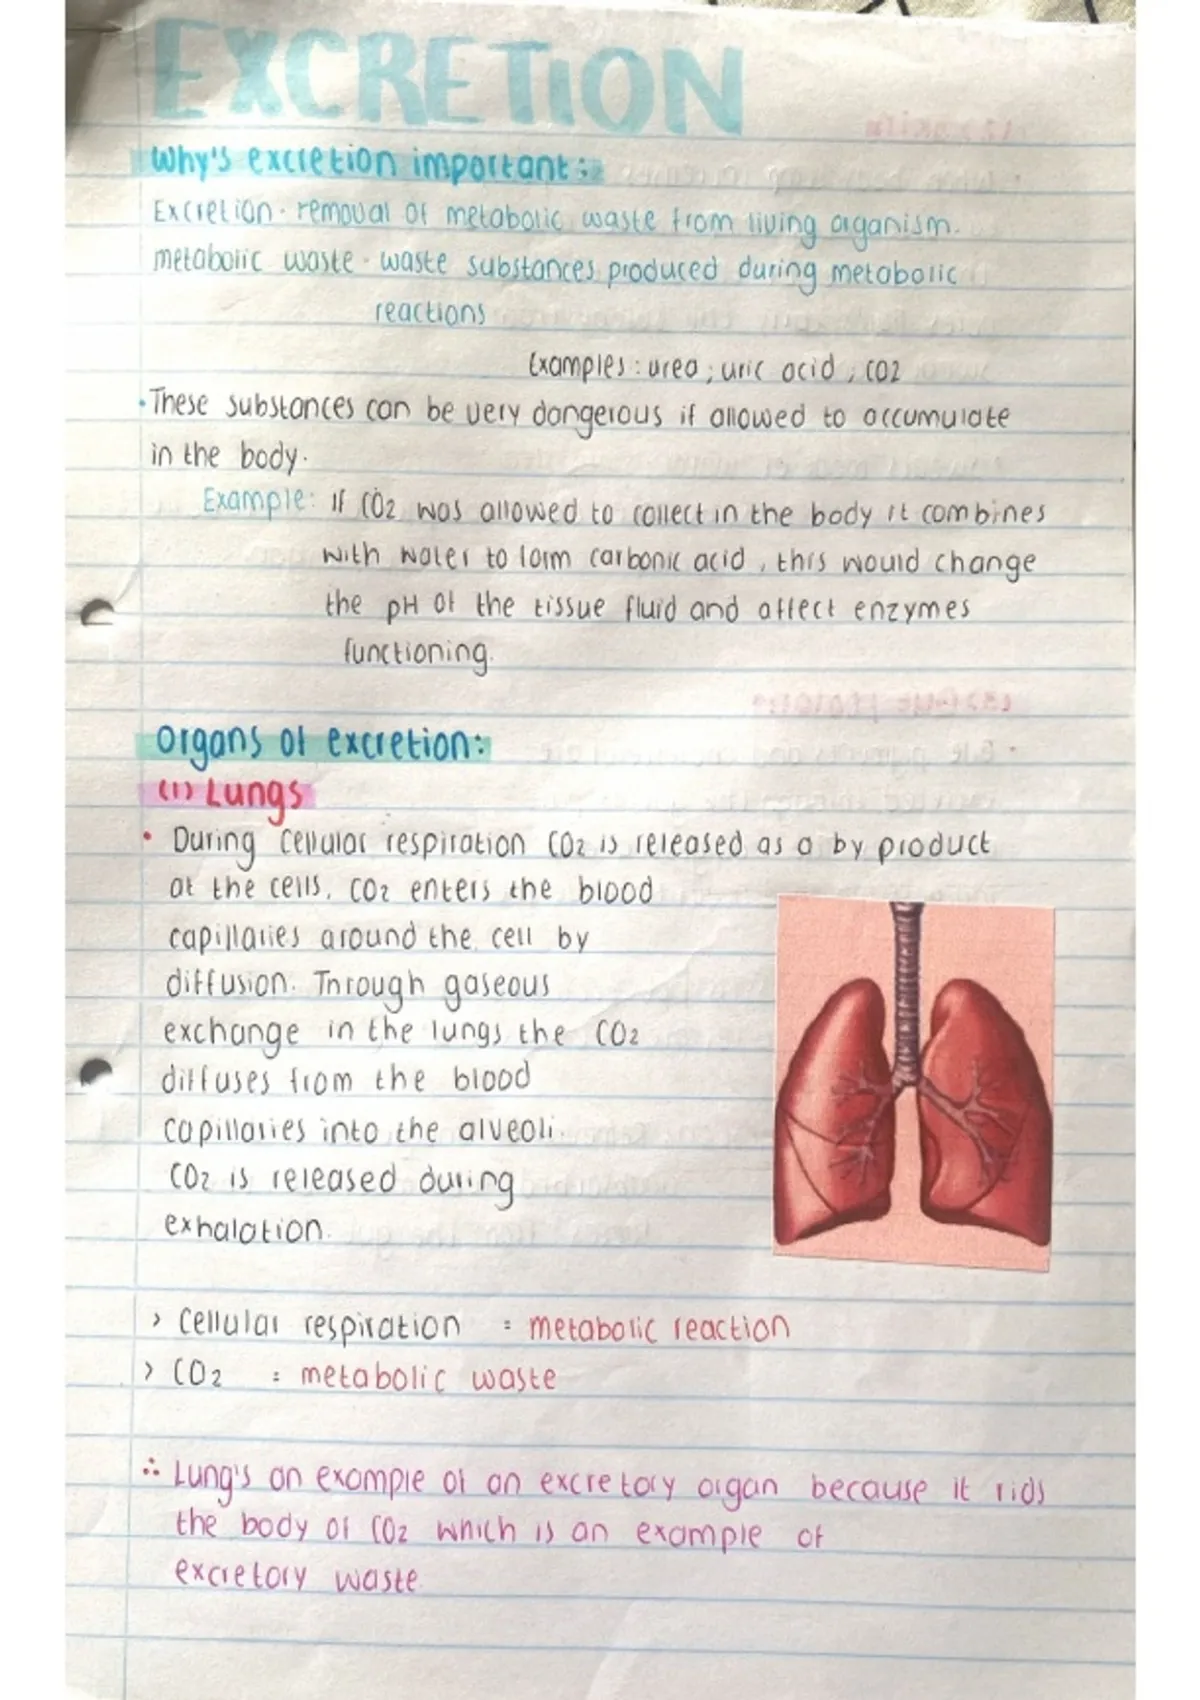 EXCRETION
Why's excretion important:
Excretion - removal of metabolic waste from living organism.
metabolic waste - waste substances produced during metabolic
reactions
Examples : urea ; uric acid ; CO2
• These substances can be very dangerous if allowed to accumulate
in the body.
Example: If CO2 was allowed to collect in the body it combines
with water to form carbonic acid, this would change
the pH of the tissue fluid and affect enzymes
functioning.
Organs of excretion:
(1) Lungs
• During Cellular respiration CO2 is released as a by product
at the cells. CO2 enters the blood
capillaries around the cell by
diffusion. Through gaseous
exchange in the lungs the CO2
diffuses from the blood
capillaries into the alveoli.
CO2 is released during
exhalation.
> Cellular respiration = metabolic reaction
> CO2 = metabolic waste
∴ Lung's an example of an excretory organ because it rids
the body of CO2 which is an example of
excretory waste.